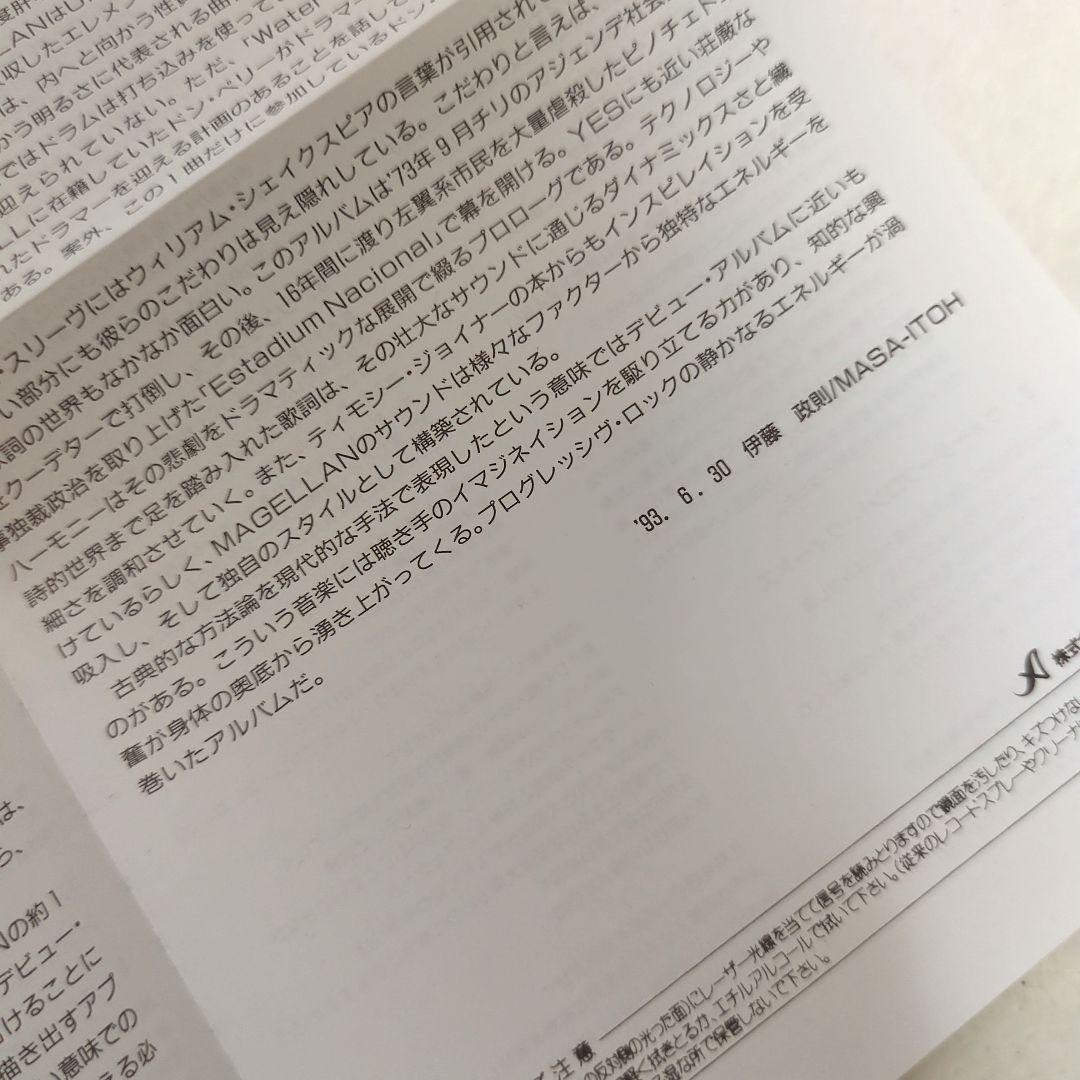 収したエレメン
は、内へと向か
かう明るさに代表される曲
ではドラムは打ち込みを使って
迎えられていない。ただ、「Water
に在籍していたドン・ベリーがドラマー
れたドラマーを迎える計画のあることを話して
ある。案外、この1曲だけに参加しているドン
スリーヴにはウィリアム・シェイクスピアの言葉が引用されて
い部分にも彼らのこだわりは見え隠れしている。こだわりと言えば、
歌詞の世界もなかなか面白い。このアルバムは'73年9月チリのアジェンデ社会
クーデターで打倒し、その後、16年間に渡り左翼系市民を大量虐殺したピノチェト
独裁政治を取り上げた「Estadium Nacional」で幕を開ける。YESにも近い荘厳な
ハーモニーはその悲劇をドラマティックな展開で綴るプロローグである。テクノロジーや
詩的世界まで足を踏み入れた歌詞は、その壮大なサウンドに通じるダイナミックスさと繊
細さを調和させていく。また、ティモシー・ジョイナーの本からもインスピレイションを受
けているらしく、MAGELLANのサウンドは様々なファクターから独特なエネルギーを
吸入し、そして独自のスタイルとして構築されている。
古典的な方法論を現代的な手法で表現したという意味ではデビュー・アルバムに近いも
のがある。こういう音楽には聴き手のイマジネイションを駆り立てる力があり、知的な興
奮が身体の奥底から湧き上がってくる。プログレッシヴ・ロックの静かなるエネルギーが渦
巻いたアルバムだ。
'93. 6. 30 伊藤 政則/MASA-ITOH
株式
ご注意
の反対側の光った面)にレーザー光線を当てて信号を読みとりますので鏡面を汚したり、キズつけない
軽く拭きとるか、エチルアルコールで拭いて下さい。(従来のレコードスプレーやクリーナ
湿な所で保管しないで下さい。
は、
ら、
Nの約1
デビュー・
けることに
描き出すアブ
意味での
える必